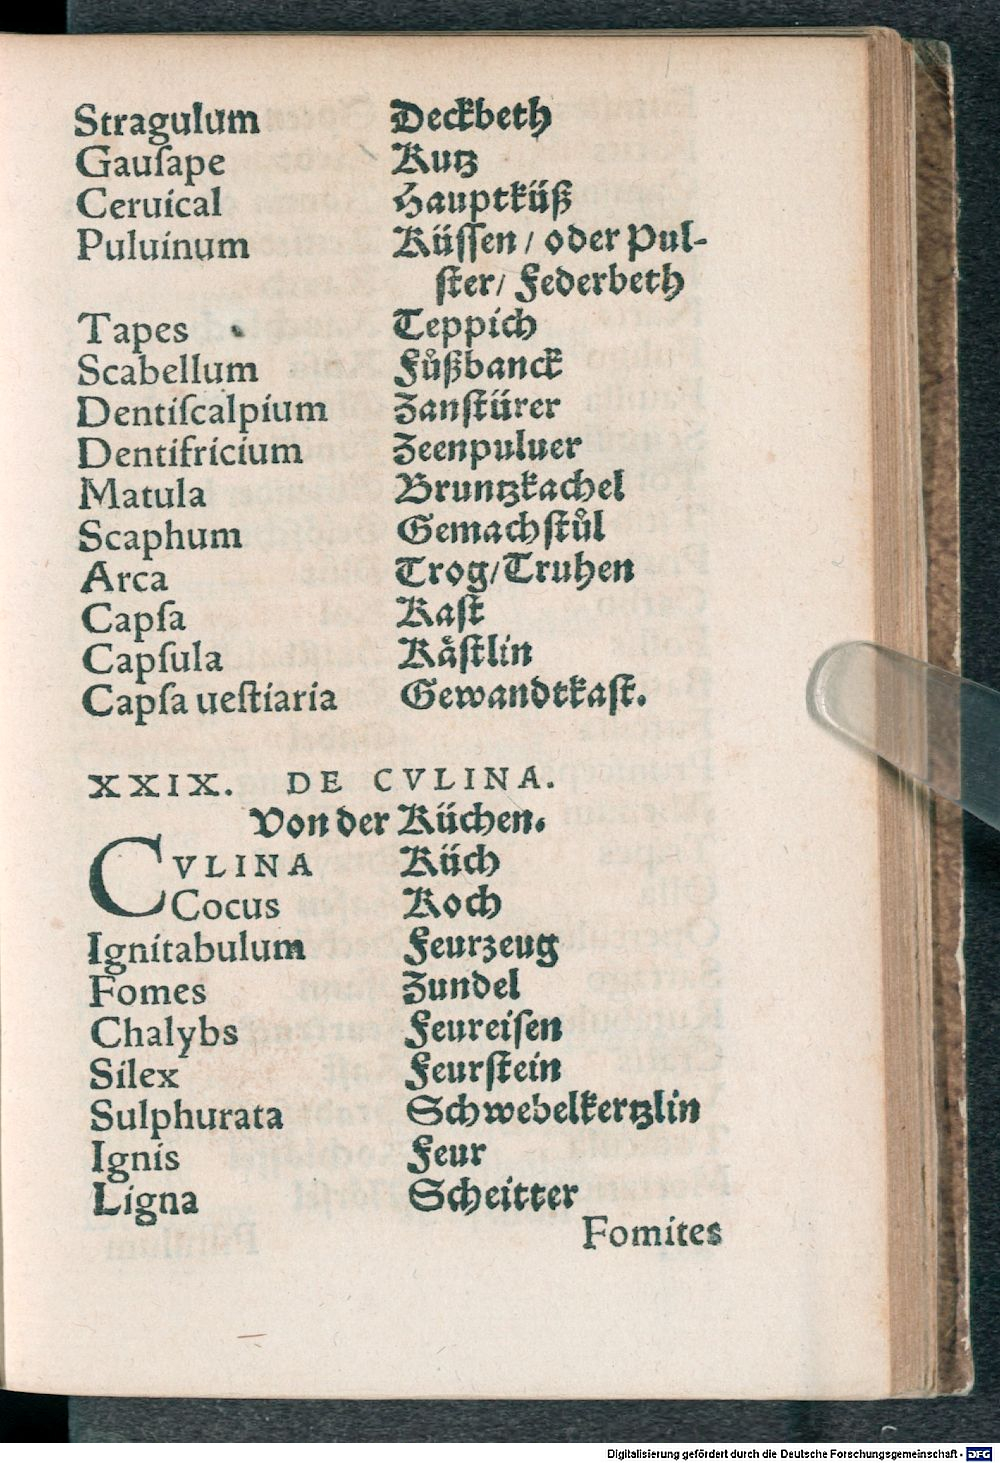 Stragulum Deckbeth
Gauſape Kutz
Ceruical Hauptküß
Puluinum Küſſen / oder Pul-
ſter/ Federbeth
Tapes Teppich
Scabellum Fůßbanck
Dentiſcalpium Zanſtürer
Dentifricium Zeenpuluer
Matula Bruntzkachel
Scaphum Gemachſtůl
Arca Trog/Truhen
Capſa Kaſt
Capſula Kåſtlin
Capſa ueſtiaria Gewandtkaſt.
XXIX. DE CVLINA.
Von der Küchen.
CVLINA Küch
Cocus Koch
Ignitabulum Feurzeug
Fomes Zundel
Chalybs Feureiſen
Silex Feurſtein
Sulphurata Schwebelkertzlin
Ignis Feur
Ligna Scheitter
Fomites
Digitalisierung gefördert durch die Deutsche Forschungsgemeinschaft - DFG